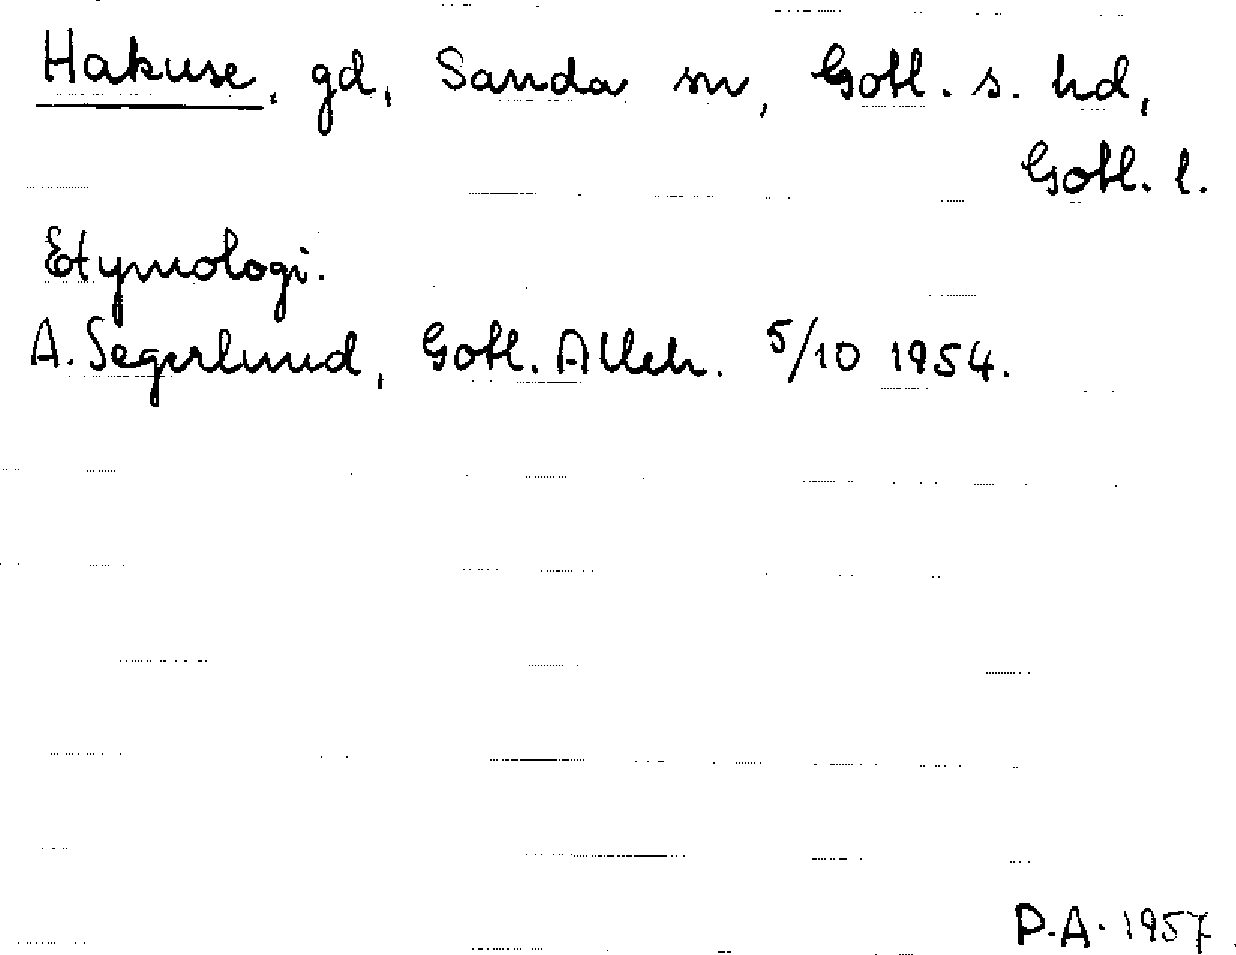 Hakuse, gd, Sanda sn, Gotl. s. hd,
Gotl. l.
Etymologi.
A. Segerlund, Gotl. Alleh. 5/10 1954.
P.A. 1957